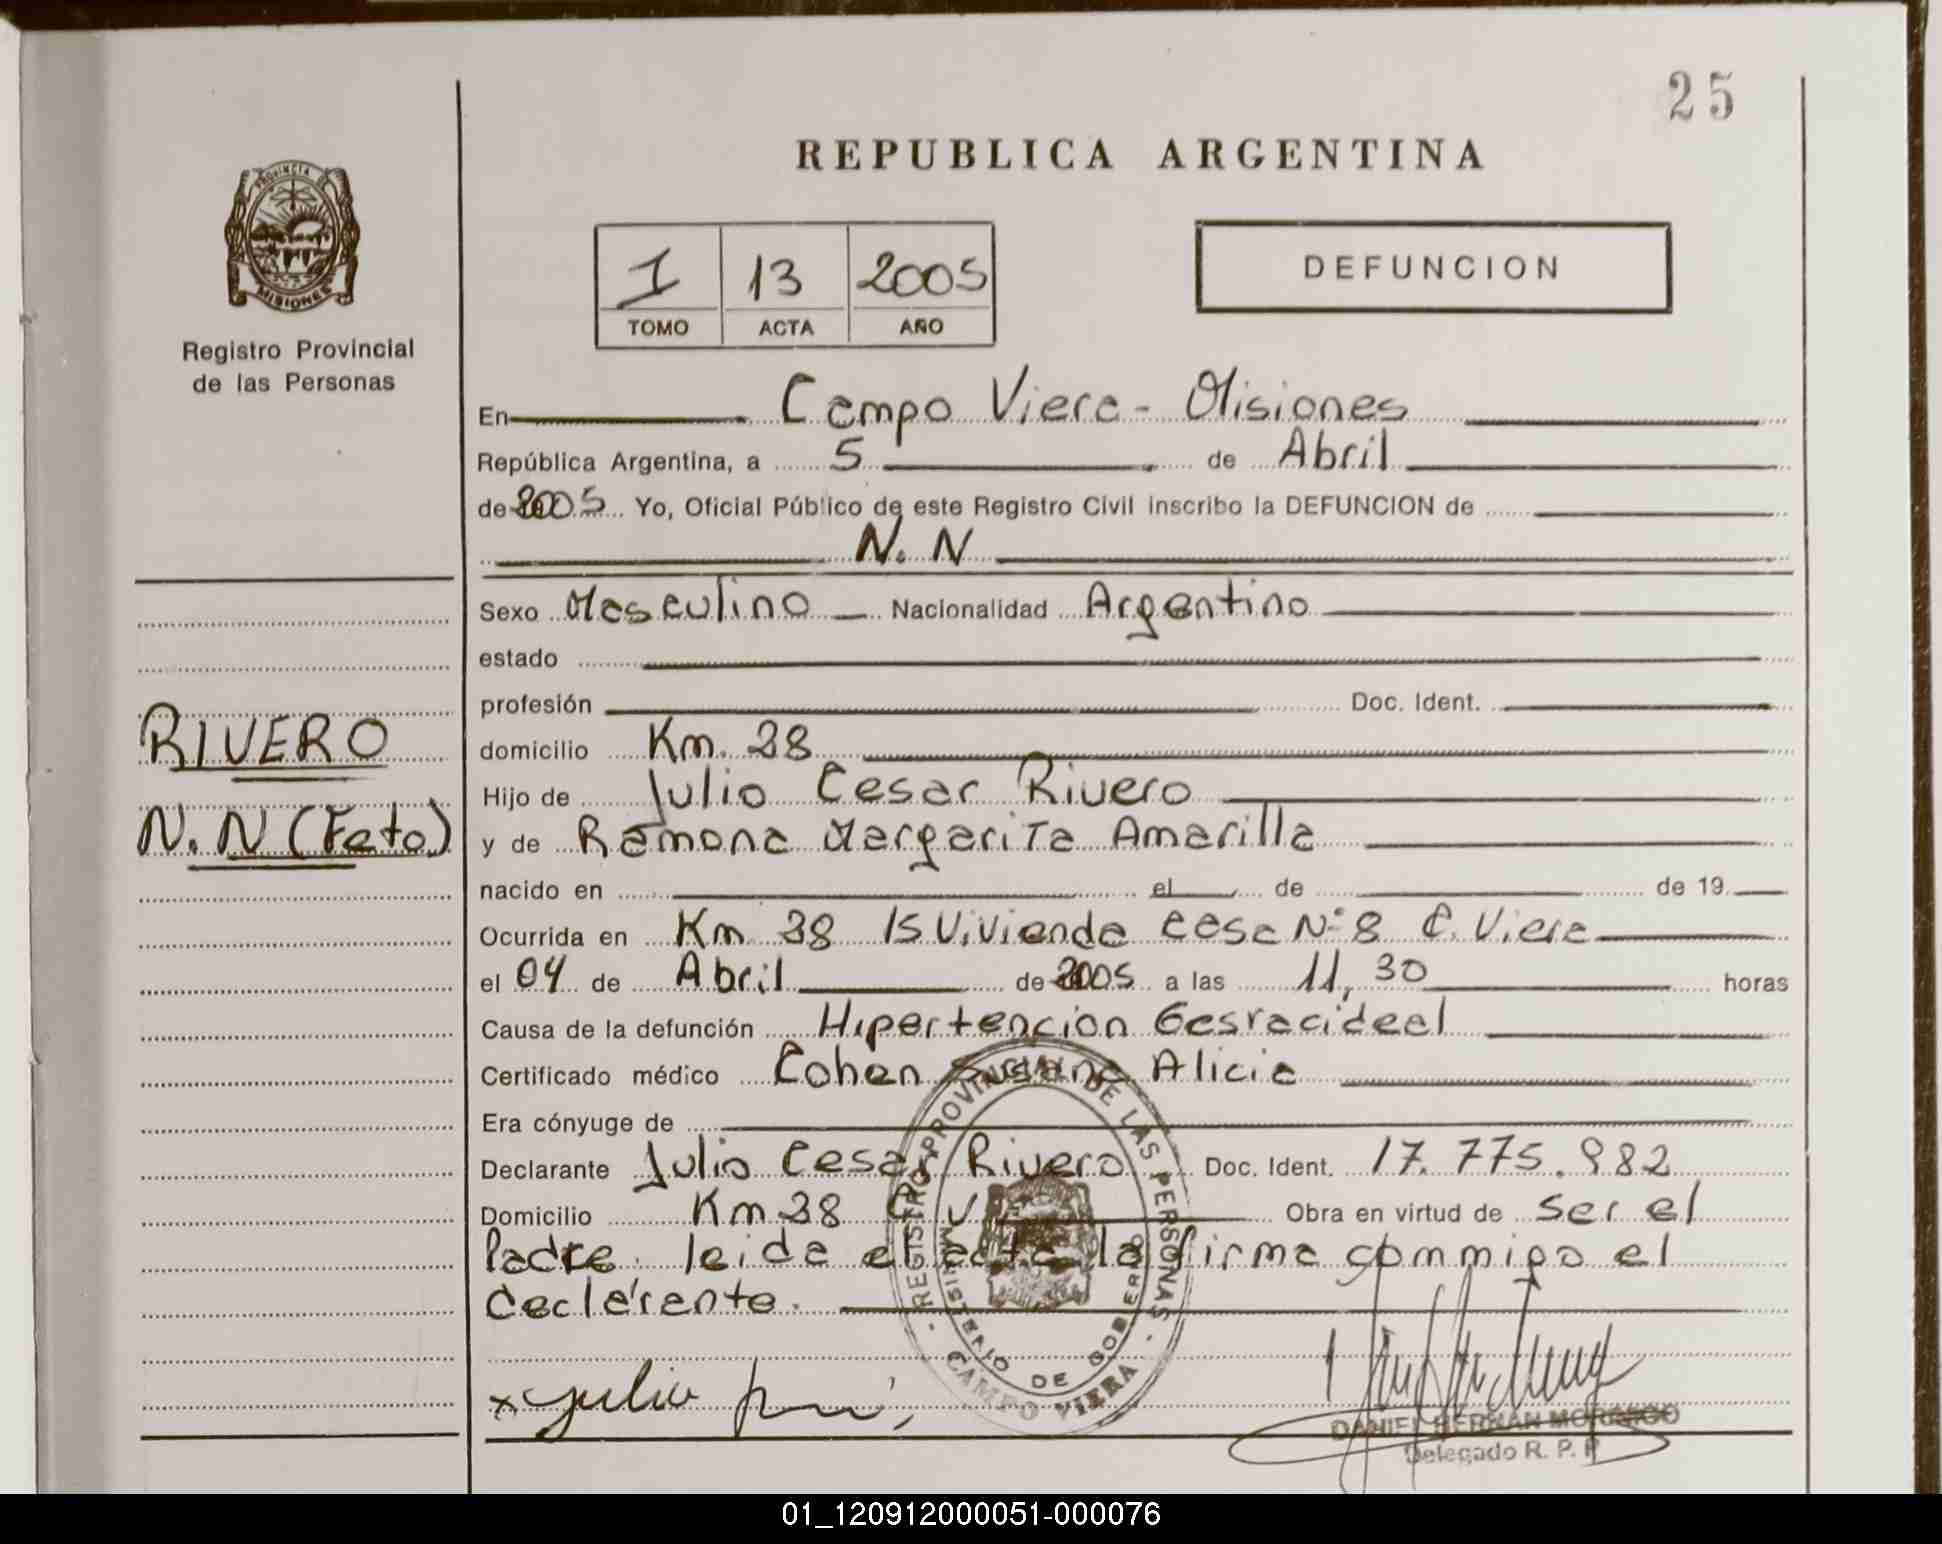 25
REPUBLICA ARGENTINA
PROVINCIA DE
MISIONES
Registro Provincial
de las Personas
I 13 2005
TOMO ACTA AÑO
DEFUNCION
En Campo Viera - Misiones
República Argentina, a 5 de Abril
de 2005 Yo, Oficial Público de este Registro Civil inscribo la DEFUNCION de
N. N
Sexo Masculino Nacionalidad Argentino
estado
profesión Doc. Ident.
RIVERO
domicilio Km. 38
Hijo de Julio Cesar Rivero
N. N (Feto)
y de Ramona Margarita Amarilla
nacido en el de de 19
Ocurrida en Km 38 15 Vivienda casa Nº 8 C. Viera
el 04 de Abril de 2005 a las 11,30 horas
Causa de la defunción Hipertencion
Certificado médico Cohen Susana Alicia
Era cónyuge de
Declarante Julio Cesar Rivero Doc. Ident. 17.775.982
Domicilio Km 38 C. V Obra en virtud de ser el
Padre. leida el acta la firma commigo el
declarante.
REGISTRO PROVINCIAL DE LAS PERSONAS
MINISTERIO DE GOBIERNO
CAMPO VIERA
x Julio
DANIEL HERNAN
Delegado R. P. P
01_120912000051-000076